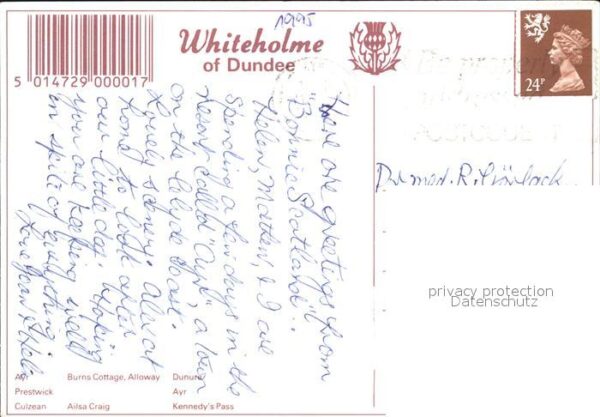 1995
Whiteholme
of Dundee
5 014729 000017
24P
POSTCODE
Here are greetings from
"Bonnie Scotland".
Helen, & I are
spending a few days in the
resort called "Ayr", a town
on the Clyde Coast.
Lovely scenery. at
home to look after
our little dog. Hoping
you are keeping well
in spite of everything
Love
Dr med. R.
privacy protection
Datenschutz
Burns Cottage, Alloway Dunure
Prestwick Ayr
Culzean Ailsa Craig Kennedy's Pass